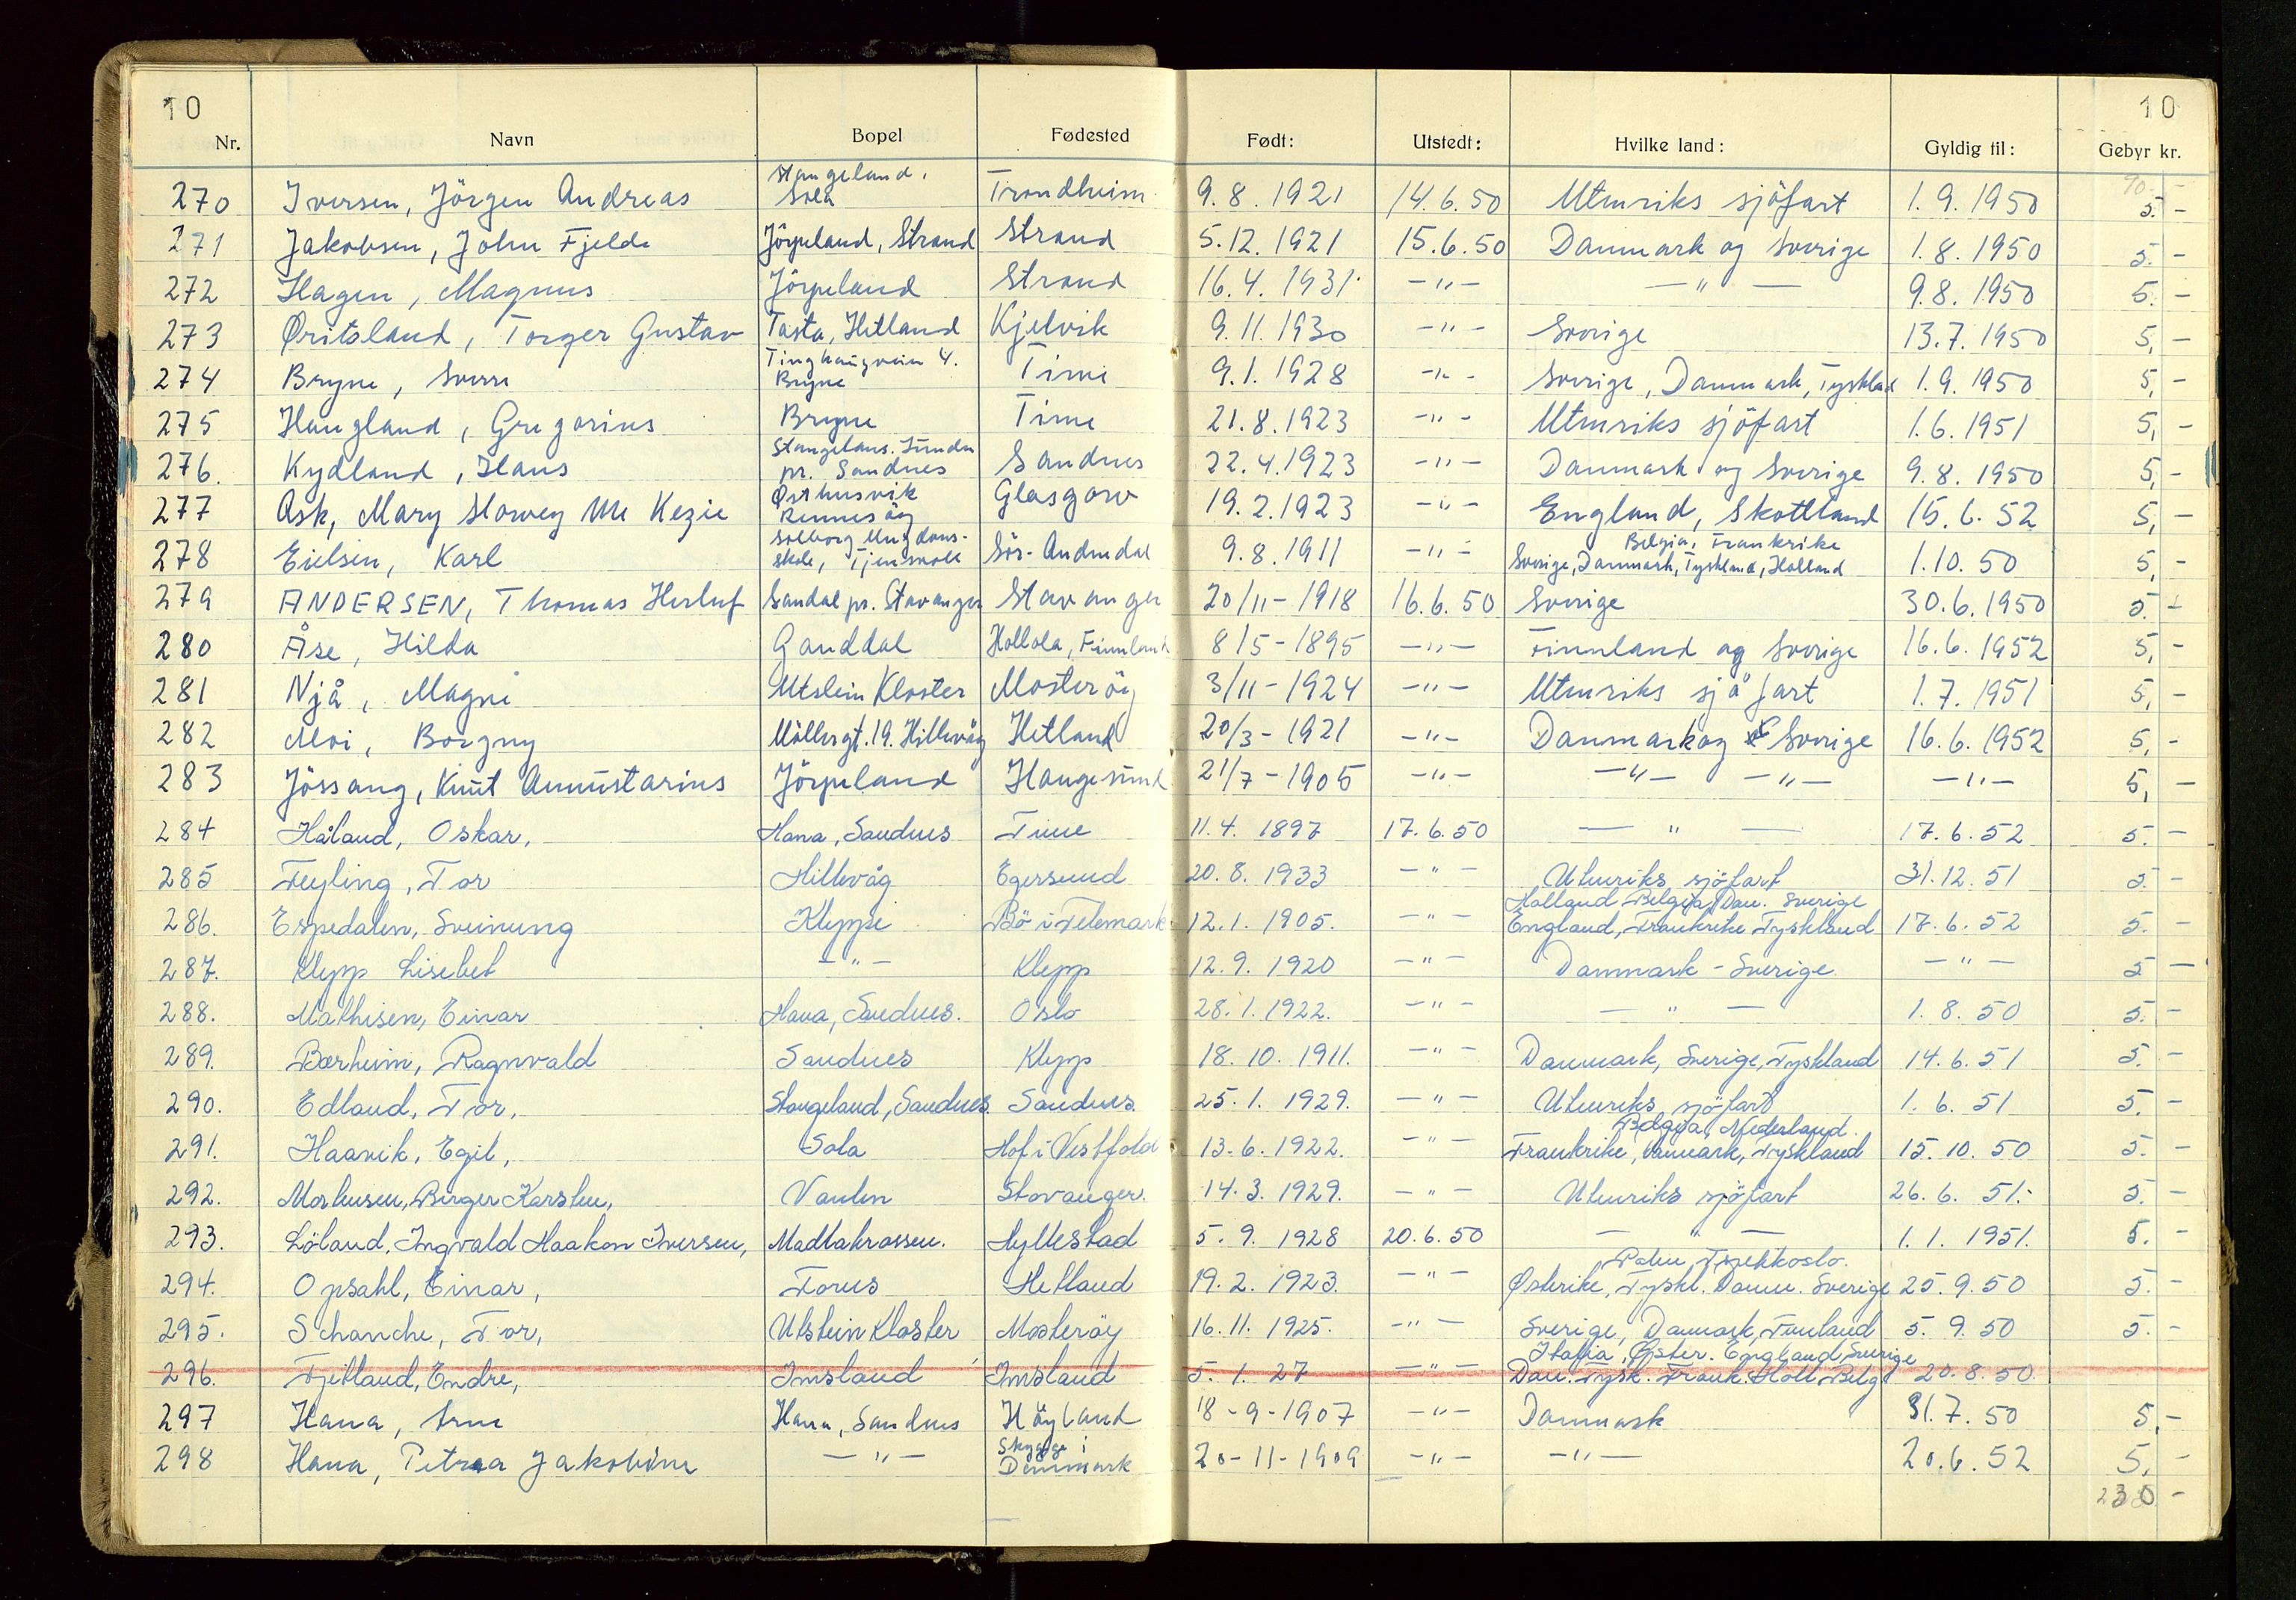 10 10
Nr. Navn Bopel Fødested Født: Utstedt: Hvilke land: Gyldig til: Gebyr kr.
90.-
Stangeland,
270 Iversen, Jörgen Andreas Sola Trondheim 9.8.1921 14.6.50 Utenriks sjöfart 1.9.1950 5.-
271 Jakobsen, John Fjelde Jörpeland, Strand Strand 5.12.1921 15.6.50 Danmark og Sverige 1.8.1950 5.-
272 Hagen, Magnus Jörpeland Strand 16.4.1931 -"- -"- 9.8.1950 5.-
273 Øritsland, Torger Gustav Tasta, Hetland Kjelvik 9.11.1930 -"- Sverige 13.7.1950 5,-
Tinghaugvein 4.
274 Bryne, Sverre Bryne Time 9.1.1928 -"- Sverige, Danmark, Tyskland 1.9.1950 5,-
275 Haugland, Gregorius Bryne Time 21.8.1923 -"- Utenriks sjöfart 1.6.1951 5,-
Stangelans.
276. Kydland, Hans pr. Sandnes Sandnes 22.4.1923 -"- Danmark og Sverige 9.8.1950 5,-
Østhusvik
277 Ask, Mary Howey Mc Kezie Rennesöy Glasgow 19.2.1923 -"- England, Skottland 15.6.52 5,-
Solborg Ungdoms- Belgia, Frankrike
278 Eielsen, Karl skole, Tjensvoll Sör-Audnedal 9.8.1911 -"- Sverige, Danmark, Tyskland, Holland 1.10.50 5,-
279 ANDERSEN, Thomas Herluf Sandal pr. Stavanger Stavanger 20/11-1918 16.6.50 Sverige 30.6.1950 5.-
280 Åse, Hilda Ganddal Hollola, Finnland 8/5-1895 -"- Finnland og Sverige 16.6.1952 5,-
281 Njå, Magne Utstein Kloster Mosteröy 3/11-1924 -"- Utenriks sjöfart 1.7.1951 5,-
282 Moi, Borgny Möllergt. 19. Hillevåg Hetland 20/3-1921 -"- Danmark og Sverige 16.6.1952 5,-
283 Jössang, Knut Jörpeland Haugesund 21/7-1905 -"- -"- -"- -"- 5,-
284 Håland, Oskar, Hana, Sandnes Time 11.4.1897 17.6.50 -"- 17.6.52 5.-
285 Feyling, Tor Hillevåg Egersund 20.8.1933 -"- Utenriks sjöfart 31.12.51 5.-
Holland Belgia, Dan. Sverige
286. Espedalen, Sveinung Kleppe Bö i Telemark 12.1.1905. -"- England, Frankrike Tyskland 17.6.52 5.-
287. Klepp Lisebet -"- Klepp 12.9.1920 -"- Danmark - Sverige. -"- 5-
288. Mathisen, Einar Hana, Sandnes. Oslo 28.1.1922. -"- -"- 1.8.50 5.-
289. Bærheim, Ragnvald Sandnes Klepp 18.10.1911. -"- Danmark, Sverige, Tyskland 14.6.51 5.-
290. Edland, Tor, Stangeland, Sandnes. Sandnes. 25.1.1929. -"- Utenriks sjöfart 1.6.51 5.-
Belgia, Nederland.
291. Haavik, Egil, Sola Hof i Vestfold 13.6.1922. -"- Frankrike, Danmark, Tyskland 15.10.50 5.-
292. Mortensen, Birger Karsten, Vaulen Stavanger. 14.3.1929. -"- Utenriks sjöfart 26.6.51.- 5.-
293. Löland, Ingvald Haakon Iversen, Madlakrossen. Hyllestad 5.9.1928 20.6.50 -"- 1.1.1951. 5.-
Polen, Tsjekkoslo.
294. Opsahl, Einar, Forus Hetland 19.2.1923. -"- Østerike, Tyskl. Danm. Sverige 25.9.50 5.-
295. Schanche, Tor, Utstein Kloster Mosteröy 16.11.1925. -"- Sverige, Danmark, Finland 5.9.50 5.-
Italia, Øster. England, Sverige
296. Tjetland, Endre, Imsland Imsland 5.1.27 -"- Dan. Tysk. Frank. Holl. Belg. 20.8.50.
297 Hana, Arne Hana, Sandnes Höyland 18-9-1907 -"- Danmark 31.7.50 5,-
Skygge i
298 Hana, Petraa Jakobine -"- Danmark 20-11-1909 -"- -"- 20.6.52 5,-
230-